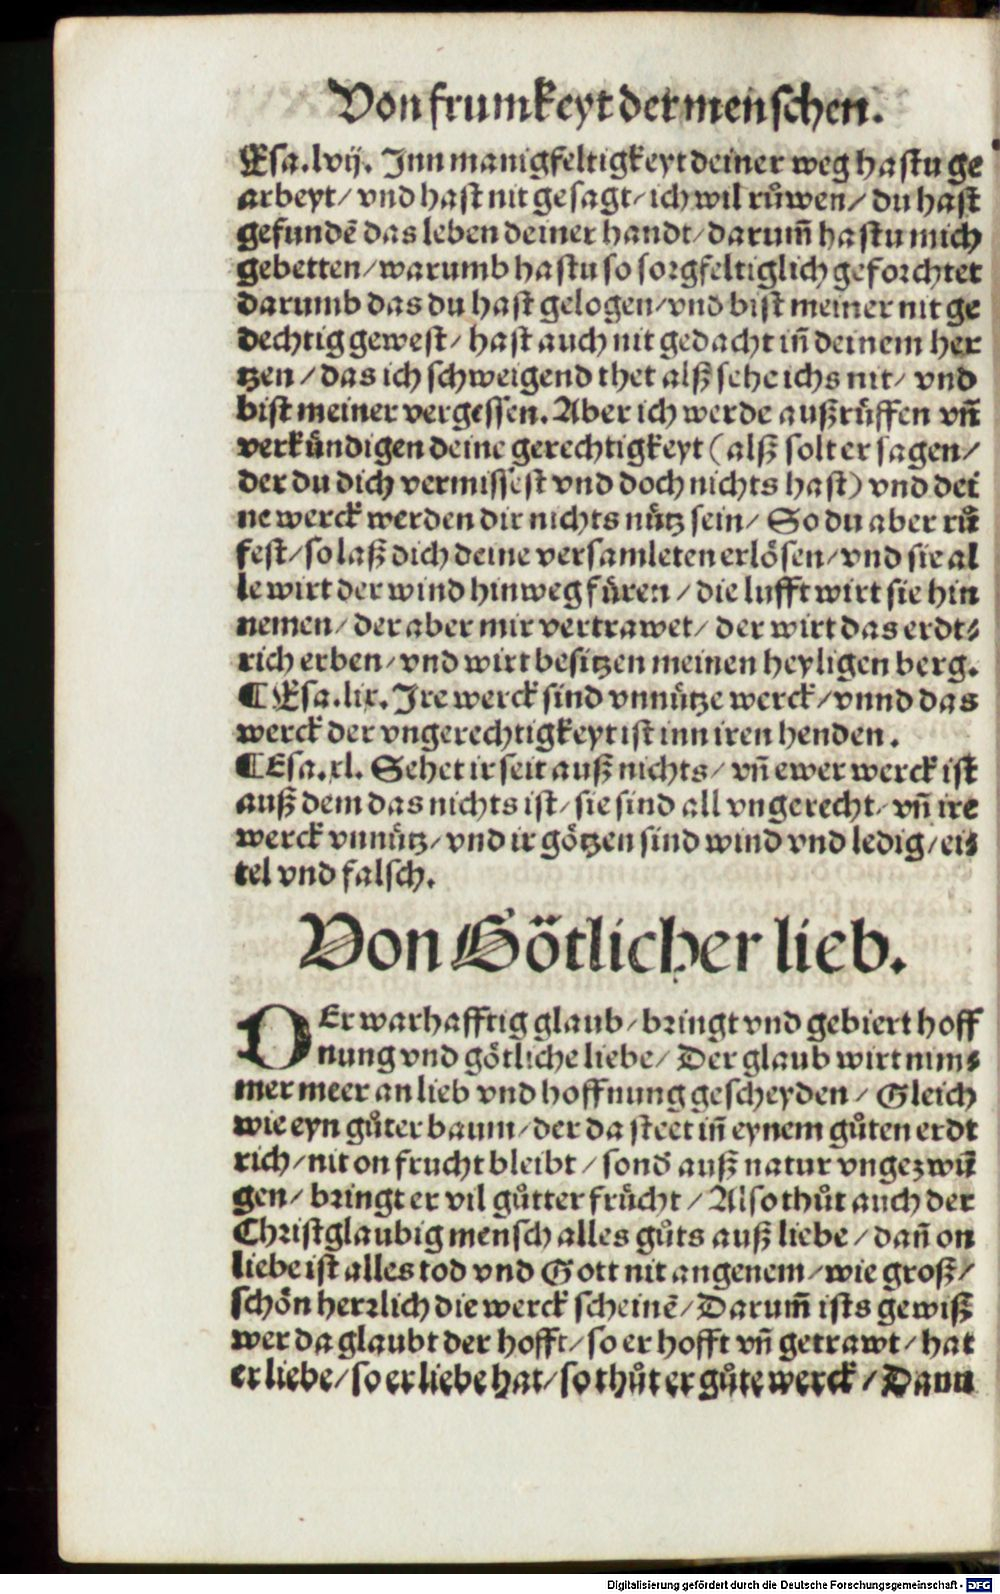 Von frumkeyt der menschen.
Esa.lvij. Inn manigfeltigkeyt deiner weg hastu ge
arbeyt/ vnd hast nit gesagt/ ich wil růwen/ du hast
gefundē das leben deiner handt/ darum̃ hastu mich
gebetten/ warumb hastu so sorgfeltiglich geforchtet
darumb das du hast gelogen/ vnd bist meiner nit ge
dechtig gewest/ hast auch nit gedacht in̄ deinem her
tzen / das ich schweigend thet alß sehe ichs nit/ vnd
bist meiner vergessen. Aber ich werde außrůffen vn̄
verkündigen deine gerechtigkeyt (alß solt er sagen/
der du dich vermissest vnd doch nichts hast) vnd dei
ne werck werden dir nichts nütz sein/ So du aber rů
fest/ so laß dich deine versamleten erlösen/ vnd sie al
le wirt der wind hinweg füren / die lufft wirt sie hin
nemen/ der aber mir vertrawet/ der wirt das erdt⸗
rich erben/ vnd wirt besitzen meinen heyligen berg.
¶ Esa.lix. Ire werck sind vnnütze werck/ vnnd das
werck der vngerechtigkeyt ist inn iren henden.
¶ Esa.xl. Sehet ir seit auß nichts/ vn̄ ewer werck ist
auß dem das nichts ist/ sie sind all vngerecht/ vn̄ ire
werck vnnütz/ vnd ir götzen sind wind vnd ledig/ ei⸗
tel vnd falsch.
Von Götlicher lieb.
DEr warhafftig glaub/ bringt vnd gebiert hoff
nung vnd götliche liebe/ Der glaub wirt nim⸗
mer meer an lieb vnd hoffnung gescheyden / Gleich
wie eyn gůter baum/ der da steet in̄ eynem gůten erdt
rich/ nit on frucht bleibt / sonď auß natur vngezwū
gen/ bringt er vil gůtter frücht / Also thůt auch der
Christglaubig mensch alles gůts auß liebe / dan̄ on
liebe ist alles tod vnd Gott nit angenem/ wie groß/
schön herrlich die werck scheinē/ Darum̃ ists gewiß
wer da glaubt der hofft/ so er hofft vn̄ getrawt/ hat
er liebe/ so er liebe hat/ so thůt er gůte werck / Dann
Digitalisierung gefördert durch die Deutsche Forschungsgemeinschaft - DFG